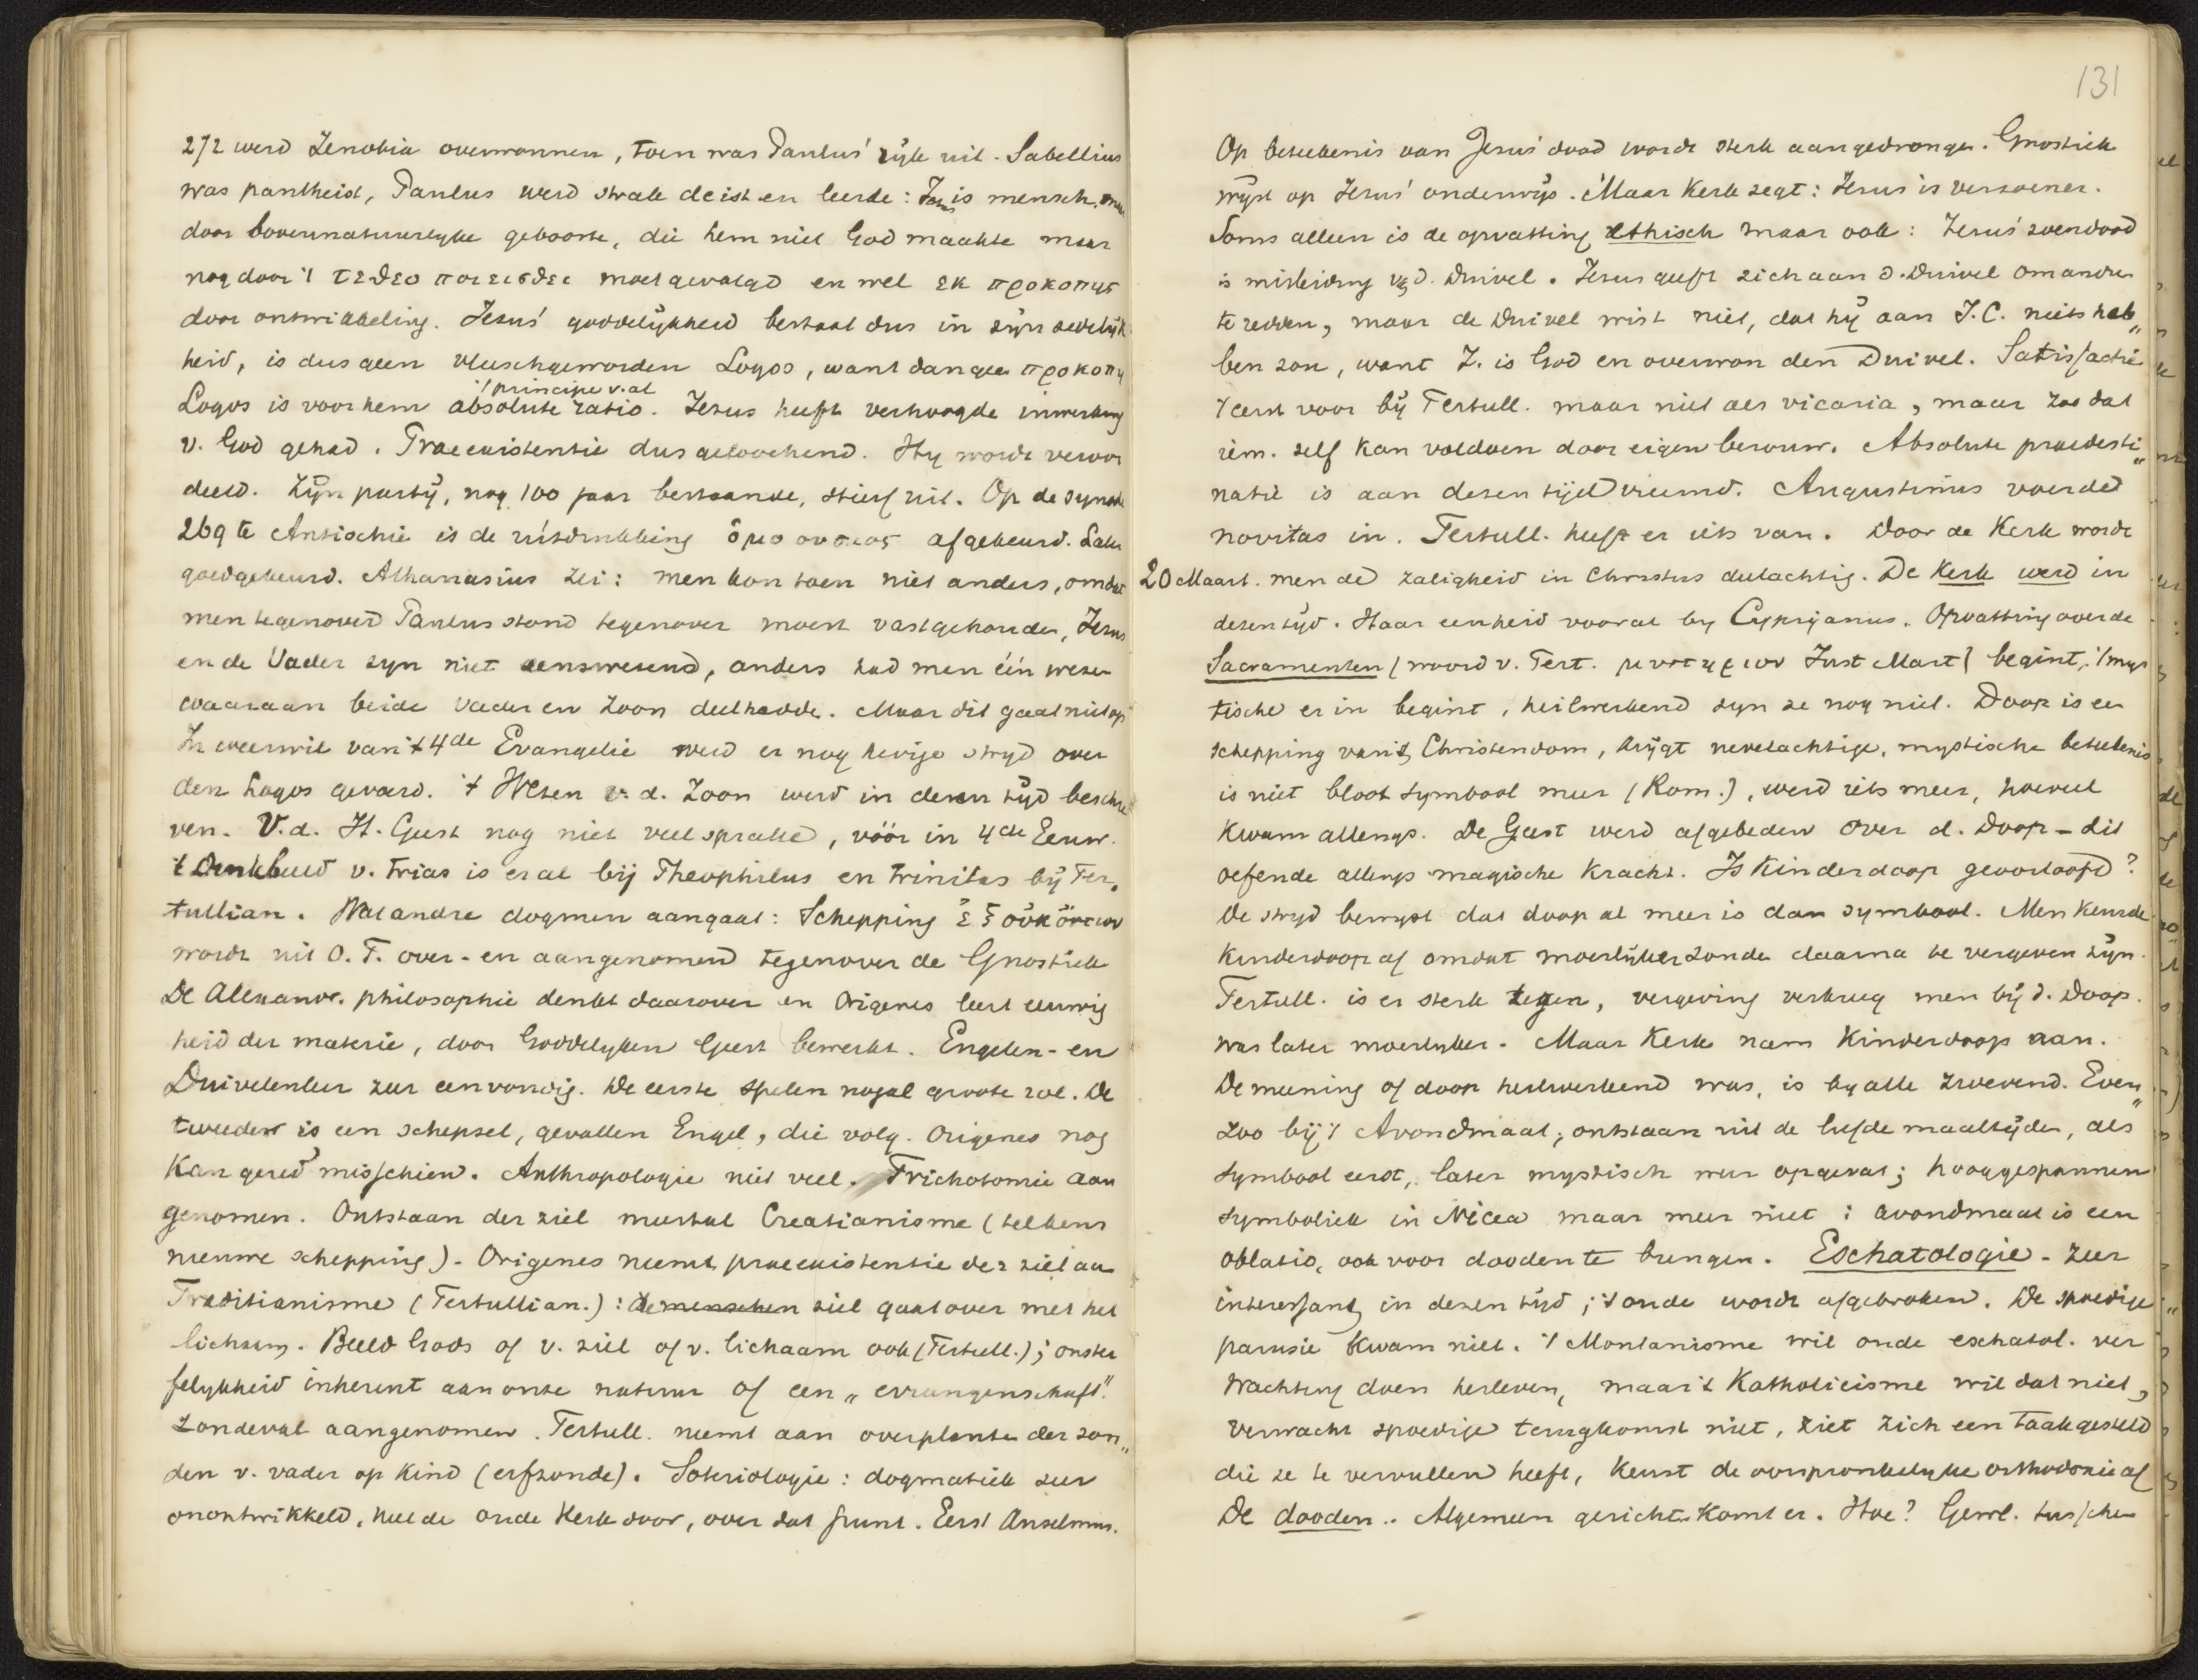 272 werd Zenobia overwonnen, toen was Paulus' rijk uit. Sabellius
was pantheist, Paulus werd strak deist en leerde: Jezus is mensch, maar
door bovennatuurlyke geboorte, die hem niet God maakte maar
nog door 't τεθεο ποιεισθει moet gevolgd en wel εκ προκοπης
door ontwikkeling. Jezus' goddelijkheid bestaat dus in zijn zedelijk
heid, is dus geen vleeschgeworden Logos, want dan geen προκοπη
't principe v. al
Logos is voor hem absolute ratio. Jezus heeft verhoogde inwerking
v. God gehad. Praeexistentie dus geloochend. Hy wordt veroor
deeld. Zijn partij, nog 100 jaar bestaande, stierf uit. Op de synode
269 te Antiochië is de uitdrukking ὁμοουσιος afgekeurd. Later
goedgekeurd. Athanasius zei: men kon toen niet anders, omdat
men tegenover Paulus stond tegenover moest vastgehouden, Jezus
en de Vader zyn niet eenswezend, anders had men één wezen
waaraan beide Vader en Zoon deelhadde. Maar dit gaat niet op
In weerwil van 't 4de Evangelie werd er nog hevige stryd over
den Logos gevoerd. 't Wezen v. d. Zoon werd in dezen tijd beschre
ven. V. d. H. Geest nog niet veel sprake, vóór in 4de Eeuw.
't Denkbeeld v. trias is er al bij Theophilus en trinitas bij Ter„
tullian. Wat andre dogmen aangaat: Schepping ἐξ οὐκ ὄντων
wordt uit O. T. over- en aangenomen tegenover de Gnostiek
De Alexandr. philosophie denkt daarover en Origenes leert eeuwig
heid der materie, door Goddelyken Geest bewerkt. Engelen- en
Duivelenleer zeer eenvoudig. De eerste spelen nogal groote rol. De
tweeden is een schepsel, gevallen Engel, die volg. Origenes nog
kan gered misschien. Anthropologie niet veel. Trichotomie aan
genomen. Ontstaan der ziel meestal Creatianisme (telkens
nieuwe schepping). Origenes neemt praeexistentie der ziel aan
Traditianisme (Tertullian.): de menschen ziel gaat over met het
lichaam. Beeld Gods of v. ziel of v. lichaam ook (Tertull.); onster
felykheid inherent aan onze natuur of een „errungenschaft".
Zondeval aangenomen. Tertull. neemt aan overplanten der zon„
den v. vader op kind (erfzonde). Soteriologie: dogmatiek zeer
onontwikkeld, heel de oude Kerk door, over dat punt. Eerst Anselmus.
131
Op beteekenis van Jezus' dood wordt sterk aangedrongen. Gnostiek
wijst op Jezus' onderwijs. Maar Kerk zegt: Jezus is verzoener.
Soms alleen is de opvatting ethisch maar ook: Jezus' zoendood
is misleiding v. d. Duivel. Jezus geeft zich aan d. Duivel om andren
te redden, maar de Duivel wist niet, dat hij aan J. C. niets heb„
ben zou, want J. is God en overwon den Duivel. Satisfactie
't eerst voor bij Tertull. maar niet als vicaria, maar zoo dat
iem. zelf kan voldoen door eigen berouw. Absolute praedesti„
natie is aan dezen tijd vreemd. Augustinus voerde
novitas in. Tertull. heeft er iets van. Door de Kerk wordt
20 Maart. men de zaligheid in Christus deelachtig. De Kerk werd in
dezen tyd. Haar eenheid vooral by Cyprianus. Opvatting over de
Sacramenten (woord v. Tert. μυστηριον Just Mart) begint, 't mys
tische er in begint, heilwerkend zyn ze nog niet. Doop is een
schepping van 't Christendom, krijgt nevelachtige, mystische beteekenis
is niet bloot symbool meer (Rom.), werd iets meer, hoewel
kwam allengs. De Geest werd afgebeden over d. Doop - dit
oefende allengs magische kracht. Is Kinderdoop geoorloofd?
De stryd bewyst dat doop al meer is dan symbool. Men keurde
kinderdoop af omdat moeilijker zonde daarna te vergeven zijn.
Tertull. is er sterk tegen, vergeving verkreeg men bij d. Doop.
was later moeilyker. Maar Kerk nam Kinderdoop aan.
De meening of doop heilwerkend was, is by alle zwevend. Even„
zoo bij 't Avondmaal; ontstaan uit de liefdemaaltijden, als
symbool eerst, later mystisch weer opgevat; hooggespannen
symboliek in Nicea maar meer niet: avondmaal is een
oblatio, ook voor dooden te brengen. Eschatologie - zeer
interessant in dezen tijd; 't oude wordt afgebroken. De spoedige
parusie kwam niet. 't Montanisme wil oude eschatol. ver
wachting doen herleven, maar 't Katholicisme wil dat niet,
verwacht spoedige terugkomst niet, ziet zich een taak gesteld
die ze te vervullen heeft, keurt de oorspronkelyke orthodoxie af
De dooden.. Algemeen gericht komt er. Hoe? Gewl. tusschen